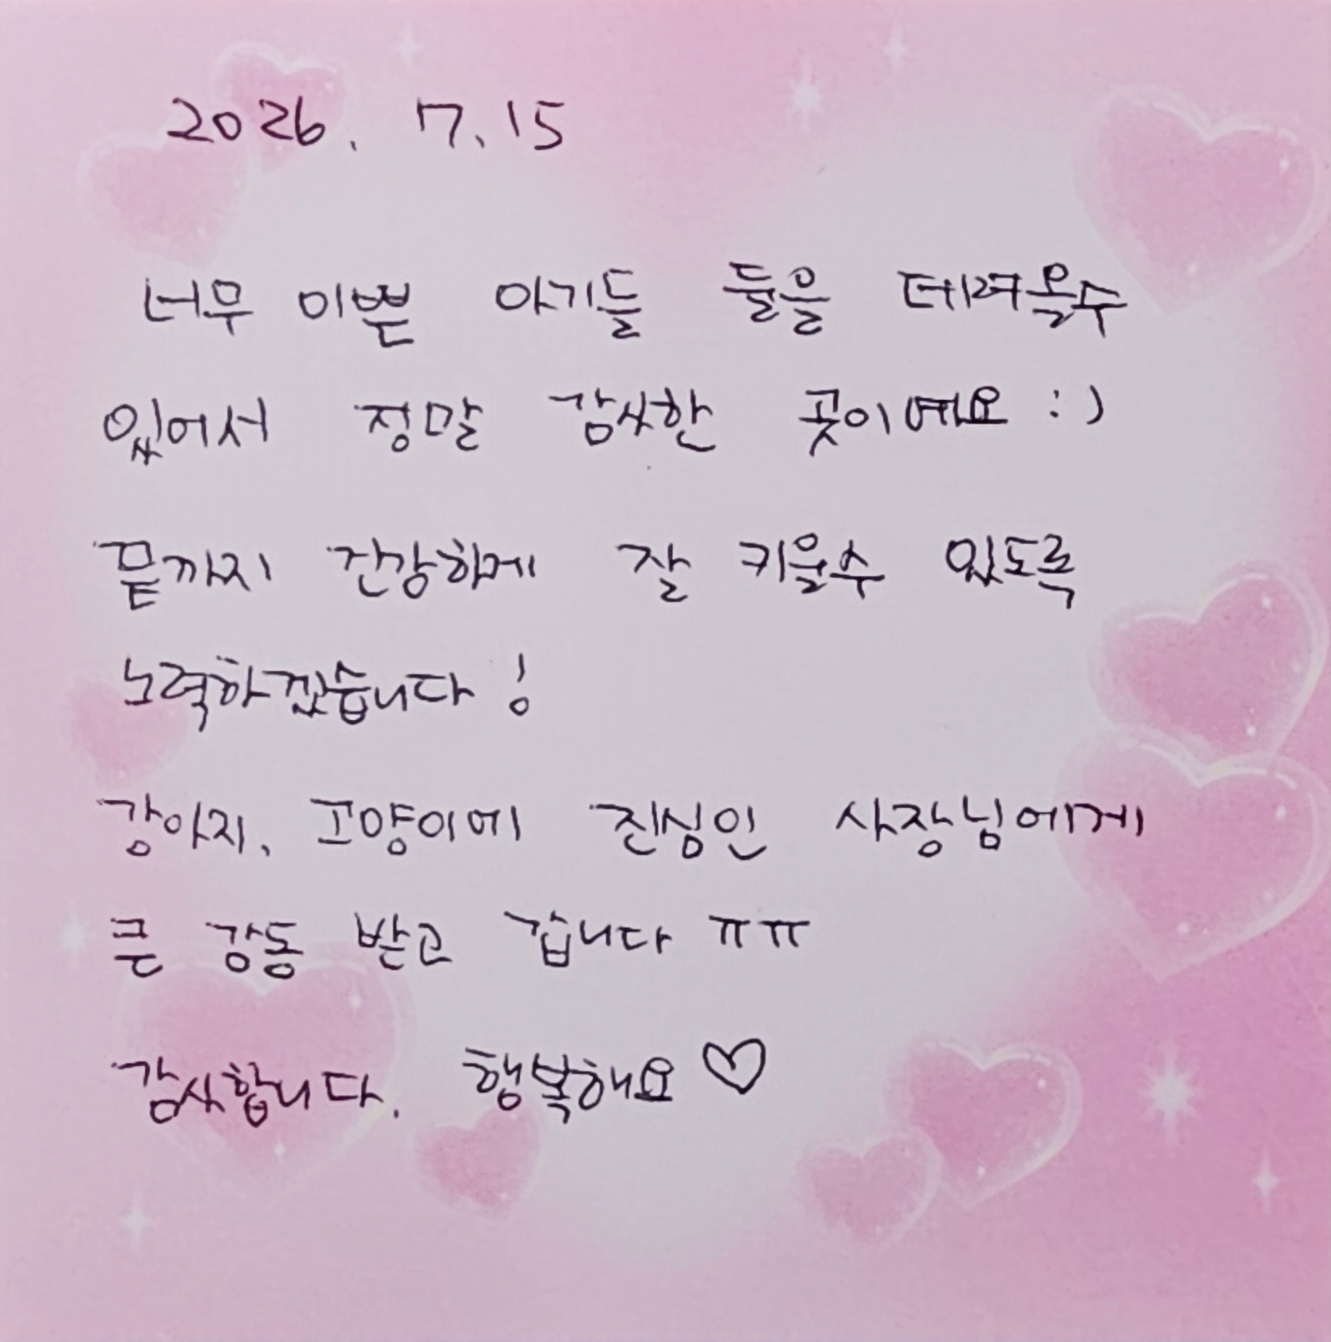 2026. 7. 15
너무 이쁜 아기들 둘을 데려올수
있어서 정말 감사한 곳이예요 :)
끝까지 건강하게 잘 키울수 있도록
노력하겠습니다!
강아지, 고양이에 진심인 사장님에게
큰 감동 받고 갑니다 ㅠㅠ
감사합니다. 행복해요 ♡